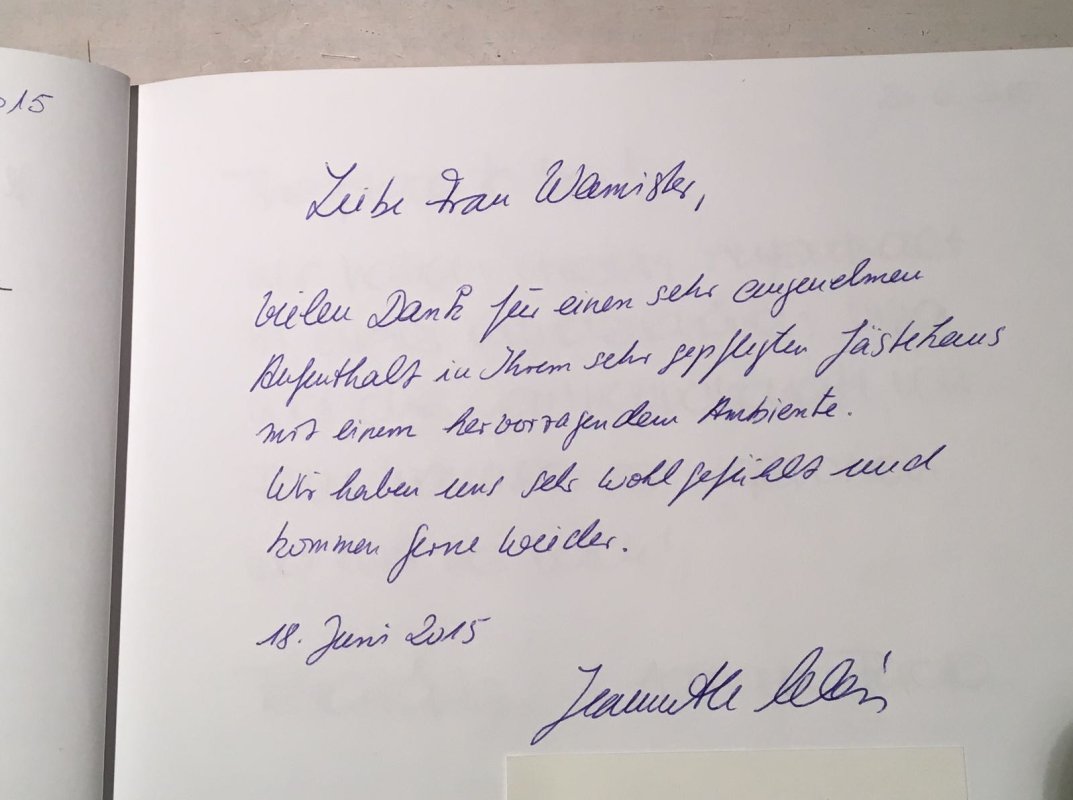 015
Liebe Frau Wamister,
Vielen Dank für einen sehr angenehmen
Aufenthalt in Ihrem sehr gepflegten Gästehaus
mit einem hervorragendem Ambiente.
Wir haben uns sehr wohl gefühlt und
kommen gerne wieder.
18. Juni 2015
Jeannette